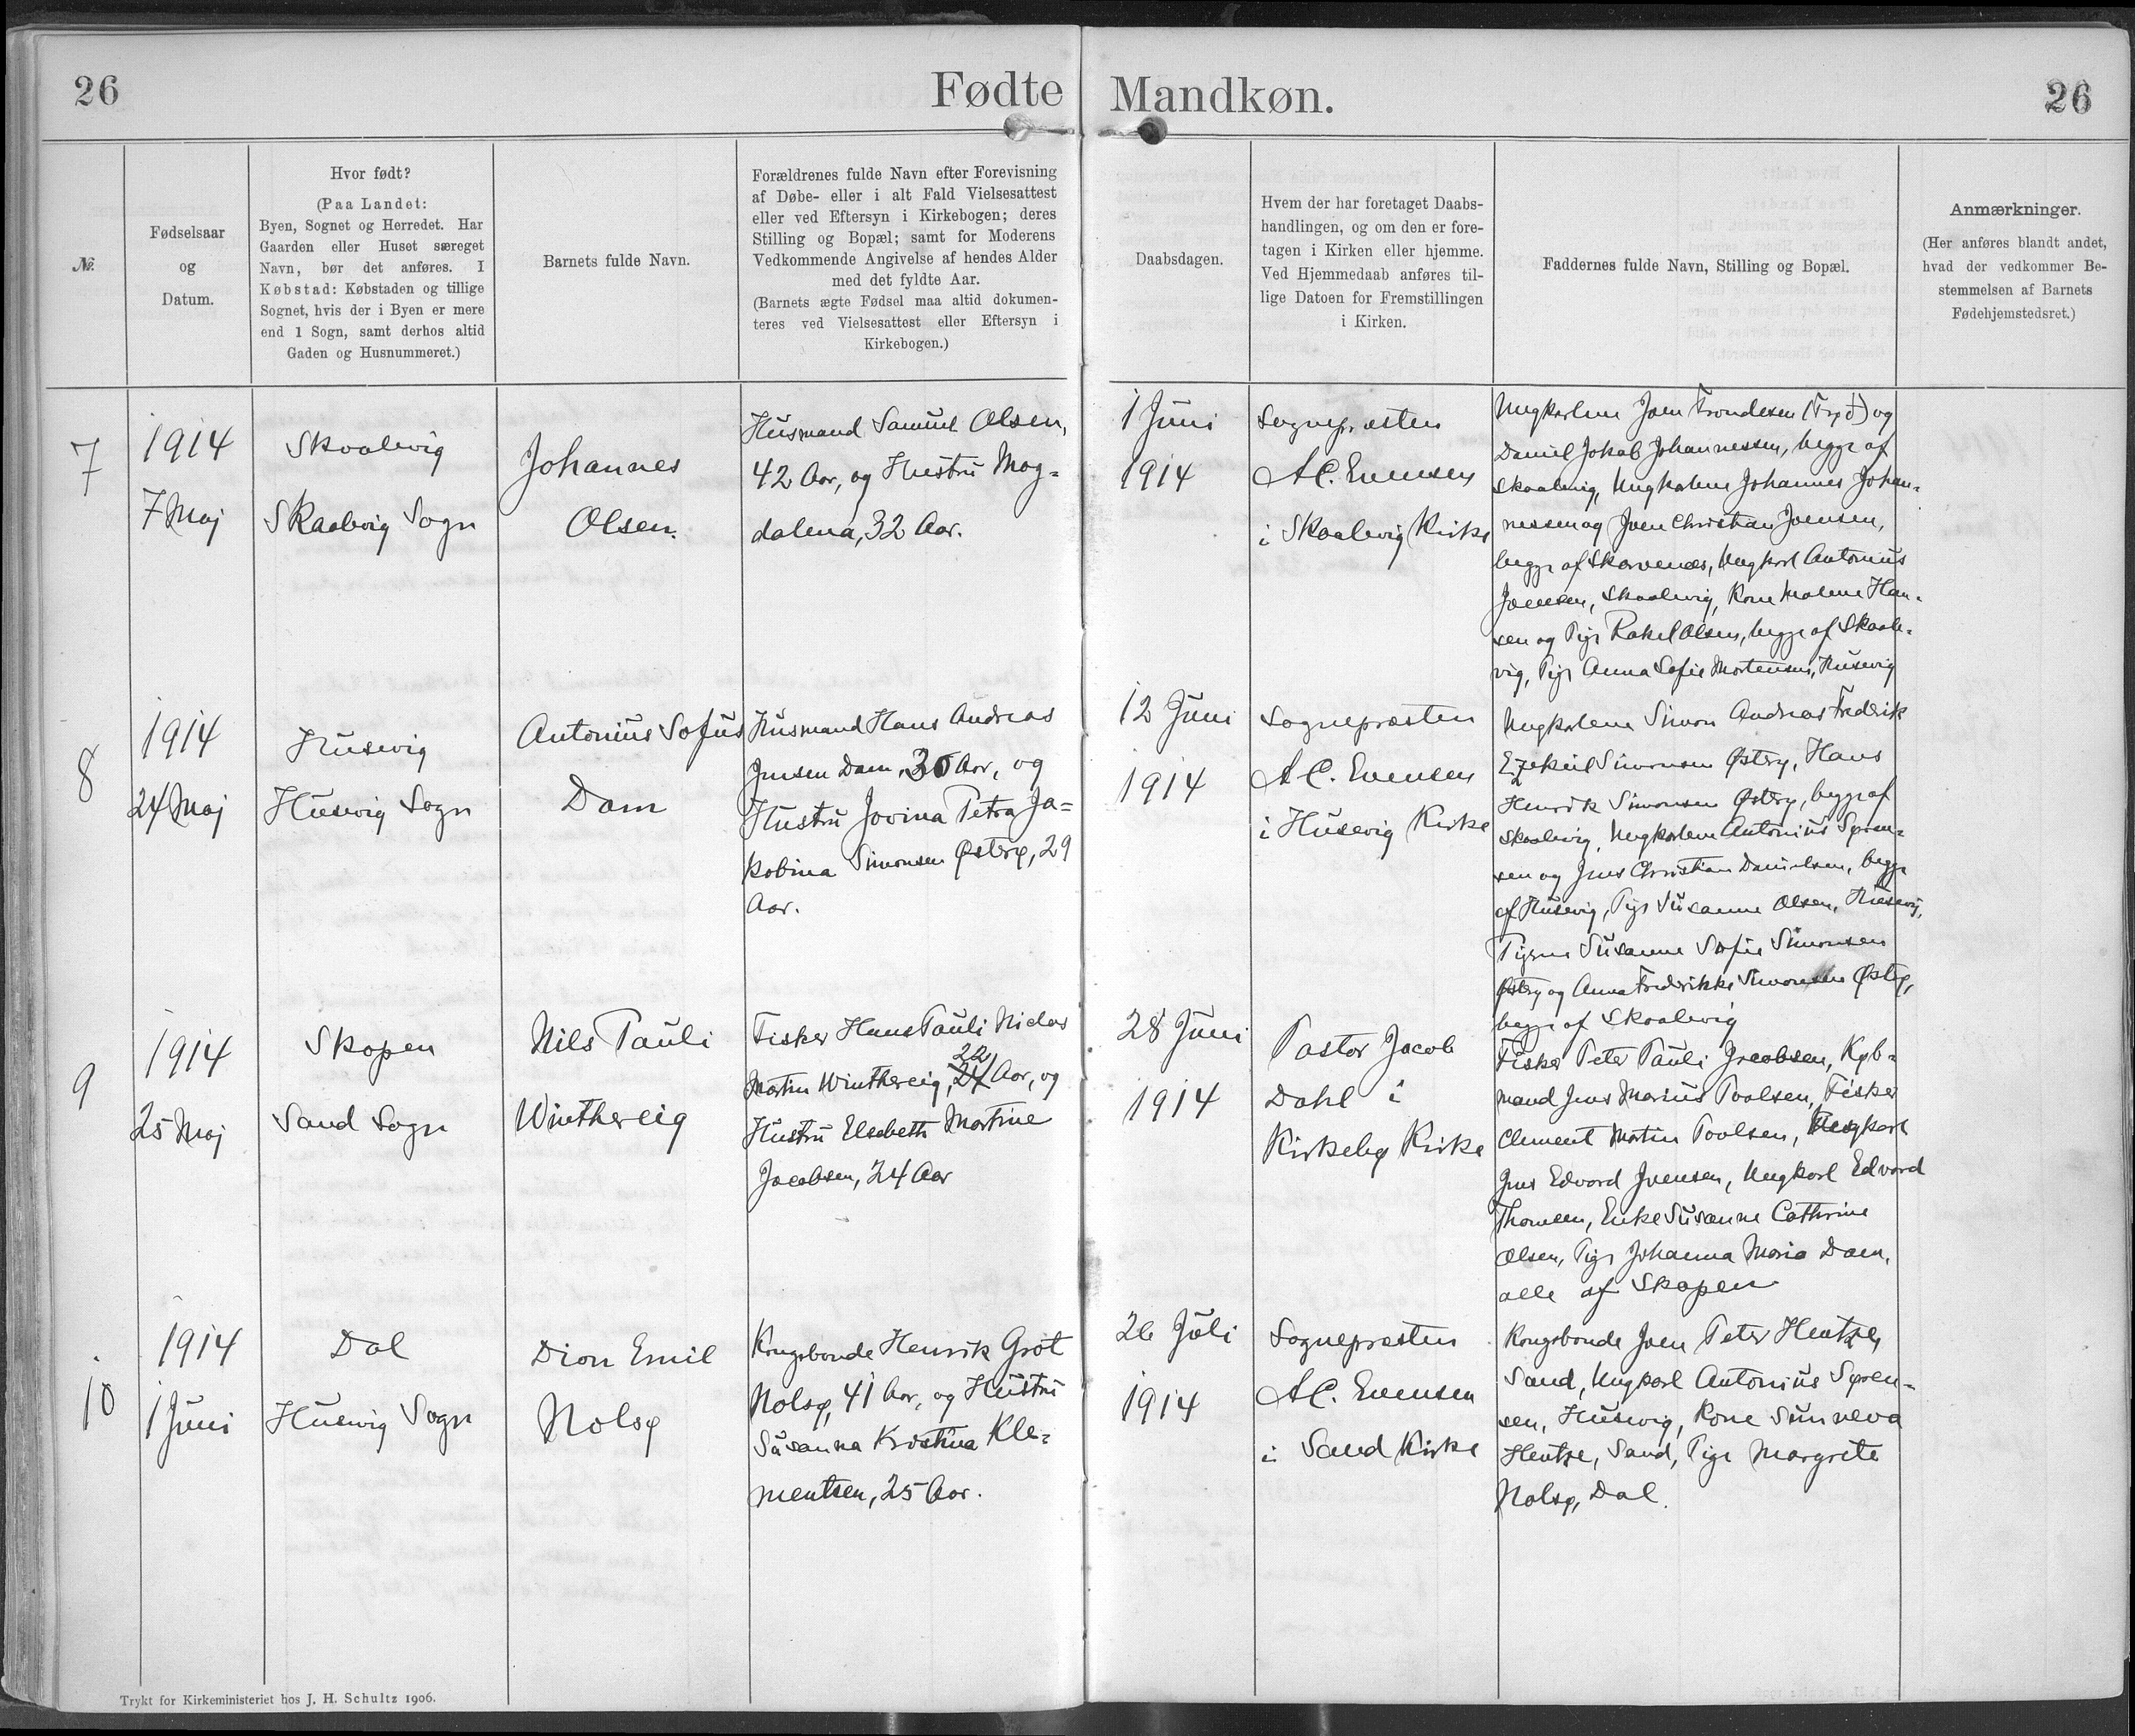 26
Fødte Mandkøn.
26
№.
Fødselsaar
og
Datum.
Hvor født?
(Paa Landet:
Byen, Sognet og Herredet. Har
Gaarden eller Huset særeget
Navn, bør det anføres. I
Købstad: Købstaden og tillige
Sognet, hvis der i Byen er mere
end 1 Sogn, samt derhos altid
Gaden og Husnummeret.)
Barnets fulde Navn.
Forældrenes fulde Navn efter Forevisning
af Døbe- eller i alt Fald Vielsesattest
eller ved Eftersyn i Kirkebogen; deres
Stilling og Bopæl; samt for Moderens
Vedkommende Angivelse af hendes Alder
med det fyldte Aar.
(Barnets ægte Fødsel maa altid dokumen-
teres ved Vielsesattest eller Eftersyn i
Kirkebogen.)
Daabsdagen.
Hvem der har foretaget Daabs-
handlingen, og om den er fore-
tagen i Kirken eller hjemme.
Ved Hjemmedaab anføres til-
lige Datoen for Fremstillingen
i Kirken.
Faddernes fulde Navn, Stilling og Bopæl.
Anmærkninger.
(Her anføres blandt andet,
hvad der vedkommer Be-
stemmelsen af Barnets
Fødehjemstedsret.)
7
1914
7 Maj
Skaalevig
Skaalevig Sogn
Johannes
Olsen.
Husmand Samuel Olsen,
42 Aar, og Hustru Mag-
dalena, 32 Aar.
1 Juni
1914
Sognepræsten
A.C. Evensen
i Skaalevig Kirke
Ungkarlene Joen Trondesen og
Daniel Jakob Johannessen, begge af
Skaalevig, Ungkarlene Johannes Johan-
nessen og Joen Christian Joensen,
begge af Skarvenæs, Ungkarl Antonius
Joensen, Skaalevig, Kone Malene Han-
sen og Pige Rakel Olsen, begge af Skaale-
vig, Pige Anna Sofie Mortensen, Husevig
8
1914
24 Maj
Husevig
Husevig Sogn
Antonius Sofus
Dam
Husmand Hans Andreas
Jensen Dam, 30 Aar, og
Hustru Jovina Petra Ja-
kobina Simonsen Østerø, 29
Aar.
12 Juni
1914
Sognepræsten
A.C. Evensen
i Husevig Kirke
Ungkarlene Simon Andreas Frederik
Ezekiel Simonsen Østerø, Hans
Henrik Simonsen Østerø, begge af
Skaalevig, Ungkarlene Antonius Søren-
sen og Jens Christian Danielsen, begge
af Husevig, Pige Susanne Olsen, Husevig,
Pigerne Susanne Sofie Simonsen
Østerø og Anna Frederikke Simonsen Østerø,
begge af Skaalevig
9
1914
25 Maj
Skopen
Sand Sogn
Nils Pauli
Winthereig
Fisker Hans Pauli Niclas
Martin Winthereig, 22 Aar, og
Hustru Elsebeth Martine
Jacobsen, 24 Aar
28 Juni
1914
Pastor Jacob
Dahl i
Kirkebø Kirke
Fisker Peter Pauli Jacobsen, Køb-
mand Jens Marius Poulsen, Fisker
Clement Martin Poulsen, Ungkarl
Jens Edvard Joensen, Ungkarl Edvard
Thomsen, Enke Susanne Cathrine
Olsen, Pige Johanna Maria Dam,
alle af Skopen
10
1914
1 Juni
Dal
Husevig Sogn
Dion Emil
Nolsø
Kongsbonde Henrik Grot
Nolsø, 41 Aar, og Hustru
Susanna Kristina Kle-
mentsen, 25 Aar.
26 Juli
1914
Sognepræsten
A.C. Evensen
i Sand Kirke
Kongsbonde Joen Peter Hentze,
Sand, Ungkarl Antonius Søren-
sen, Husevig, Kone Sunneva
Hentze, Sand, Pige Margrete
Nolsø, Dal.
Trykt for Kirkeministeriet hos J. H. Schultz 1906.